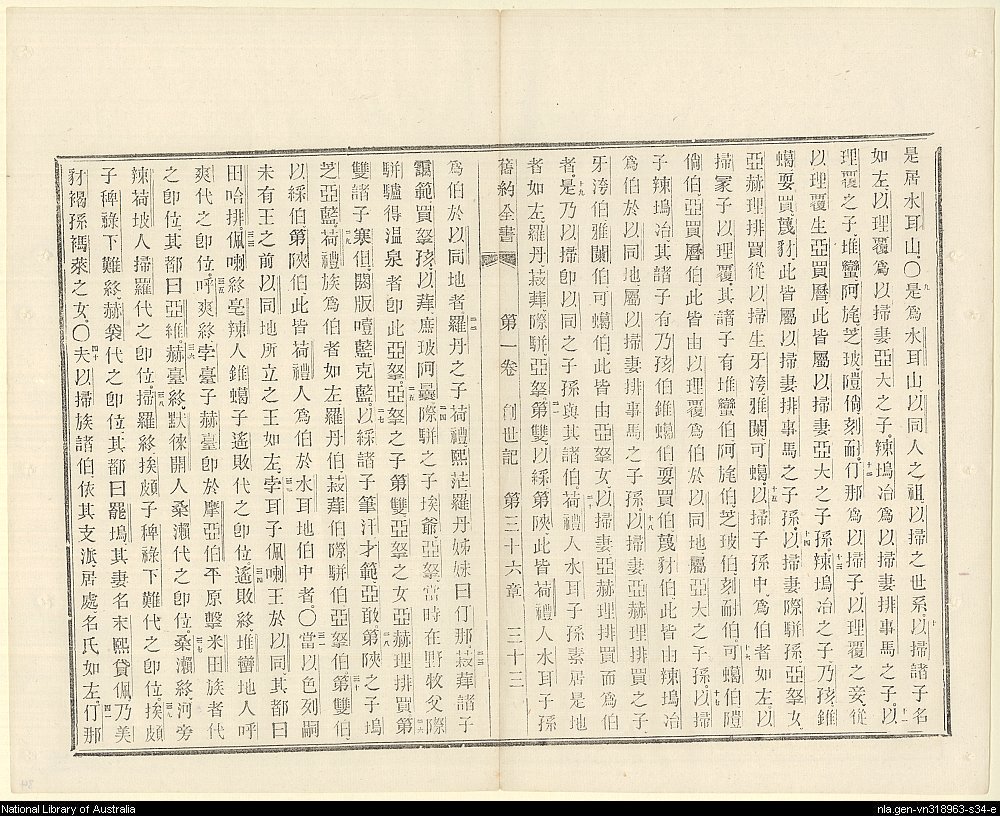 是居水耳山、〇是爲水耳山、以同人之祖、以掃之世系、以掃諸子名
如左、以理覆爲以掃妻亞大之子、辣塢冶爲以掃妻排事馬之子、以
理覆之子、堆蠻阿旄芝玻隑倘刻耐、仃那爲以掃子、以理覆之妾、從
以理覆生亞買曆、此皆屬以掃妻亞大之子孫、辣塢冶之子乃孩錐
蠋耍買蔑豺、此皆屬以掃妻排事馬之子孫、以掃妻際騈孫、亞拏女、
亞赫理排買從以掃生牙洿雅闌可蠋、以掃子孫中、爲伯者如左、以
掃冢子以理覆、其諸子有堆蠻伯阿旄伯、芝玻伯刻耐伯可蠋伯隑
倘伯亞買曆伯、此皆由以理覆爲伯於以同地屬亞大之子孫、以掃
子辣塢冶其諸子有乃孩伯錐蠋伯耍買伯蔑豺伯此皆由辣塢冶
爲伯於以同地、屬以掃妻排事馬之子孫、以掃妻亞赫理排買之子、
牙洿伯雅闌伯可蠋伯、此皆由亞拏女以掃妻亞赫理排買而爲伯
者、是乃以掃卽以同之子孫與其諸伯、荷禮人水耳子孫素居是地
者如左、羅丹菽葬際騈、亞拏第雙、以綵第陝、此皆荷禮人水耳子孫
舊約全書 第一卷 創世記 第三十六章 三十三
爲伯於以同地者、羅丹之子荷禮熙茫、羅丹姊妹曰仃那、菽葬諸子
靄範買拏孩以葬庶玻阿曩、際騈之子挨爺、亞拏、當時在野牧父際
騈驢得温泉者卽此亞拏、亞拏之子第雙亞拏之女亞赫理排買、第
雙諸子寒徂、閼版噎藍克藍、以綵諸子筆汗才範、亞敢、第陝之子塢
芝亞藍、荷禮族爲伯者如左、羅丹伯、菽葬伯際騈伯亞拏伯第雙伯
以綵伯第陝伯、此皆荷禮人爲伯於水耳地伯中者、〇當以色列嗣
未有王之前、以同地所立之王如左、孛耳子佩喇王於以同、其都曰
田哈排、佩喇終、亳辣人錐蠋子遙敗代之卽位、遙敗終、堆蠻地人呼
爽代之卽位、呼爽終、孛臺子赫臺卽於摩亞伯平原擊米田族者代
之卽位、其都曰亞維、赫臺終、默徠開人桑瀨代之卽位、桑瀨終、河旁
辣荷坡人掃羅代之卽位、掃羅終、挨頗子稗祿下難代之卽位、挨頗
子稗祿下難終、赫袋代之卽位、其都曰罷塢、其妻名末熙貸佩、乃美
豺褐孫、禡萊之女、〇夫以掃族諸伯依其支派居處名氏如左、仃那
National Library of Australia
nla.gen-vn318963-s34-e